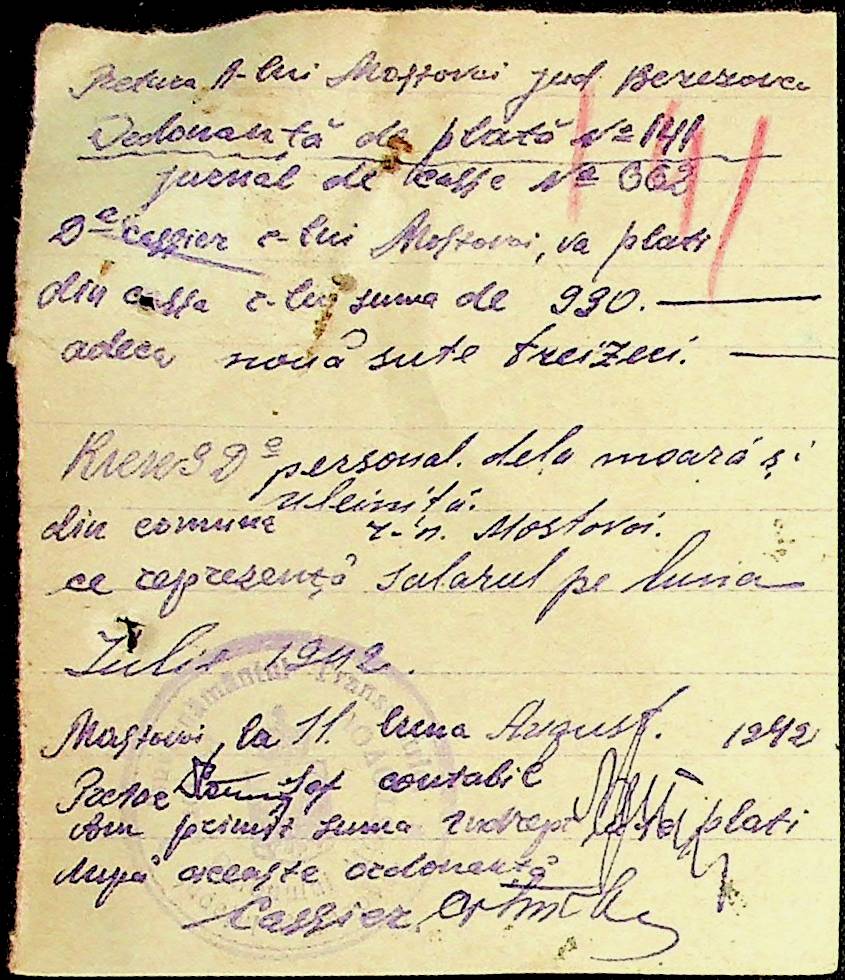 Pretura R-lui Mostovoi jud. Berezovca
Ordonanță de plată Nº 141
141
jurnal de casse Nº 662
Dº cassier r-lui Mostovoi, va plati
din cassa r-lui suma de 930.
adeca nouă sute treizeci.
Dº personal. dela moară și
uleiniță.
din comuna r-n. Mostovoi.
ce reprezență salarul pe luna
Iulie 1942.
Mostovoi, la 11. luna August. 1942
Pretor Șef contabil
Am primit suma plati
după aceaste ordonanță
Cassier